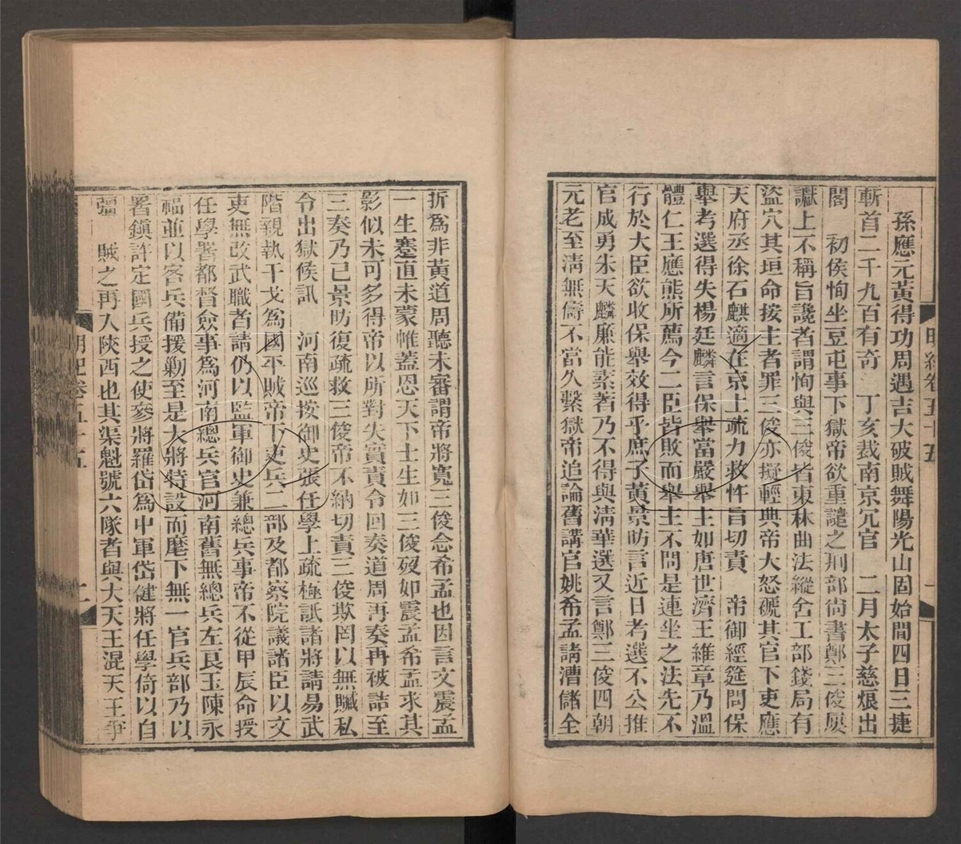 孫應元黃得功周遇吉大破賊舞陽光山固始間四日三捷
斬首二千九百有奇　丁亥裁南京宂官　二月太子慈烺出
閣　初侯恂坐豆屯事下獄帝欲重譴之刑部尙書鄭三俊屢
讞上不稱旨讒者謂恂與三俊皆東林曲法縱舍工部錢局有
盜穴其垣命按主者罪三俊亦擬輕典帝大怒褫其官下吏應
天府丞徐石麒適在京上疏力救忤旨切責　帝御經筵問保
舉考選得失楊廷麟言保舉當嚴舉主如唐世濟王維章乃溫
體仁王應熊所薦今二臣皆敗而舉主不問是連坐之法先不
行於大臣欲收保舉效得乎庶子黃景昉言近日考選不公推
官成勇朱天麟廉能素著乃不得與淸華選又言鄭三俊四朝
元老至淸無儔不當久繫獄帝追論舊講官姚希孟請漕儲全
折爲非黃道周聽未審謂帝將寬三俊念希孟也因言文震孟
一生蹇直未蒙帷蓋恩天下士生如三俊歿如震孟希孟求其
影似未可多得帝以所對失實責令回奏道周再奏再被詰至
三奏乃已景昉復疏救三俊帝不納切責三俊欺罔以無贓私
令出獄候訊　河南巡按御史張任學上疏極詆諸將請易武
階親執干戈爲國平賊帝下吏兵二部及都察院議諸臣以文
吏無改武職者請仍以監軍御史兼總兵事帝不從甲辰命授
任學署都督僉事爲河南總兵官河南舊無總兵左良玉陳永
福並以客兵備援勦至是大將特設而麾下無一官兵部乃以
署鎭許定國兵授之使參將羅岱爲中軍岱健將任學倚以自
彊　賊之再入陝西也其渠魁號六隊者與大天王混天王爭
明紀卷五十五
一